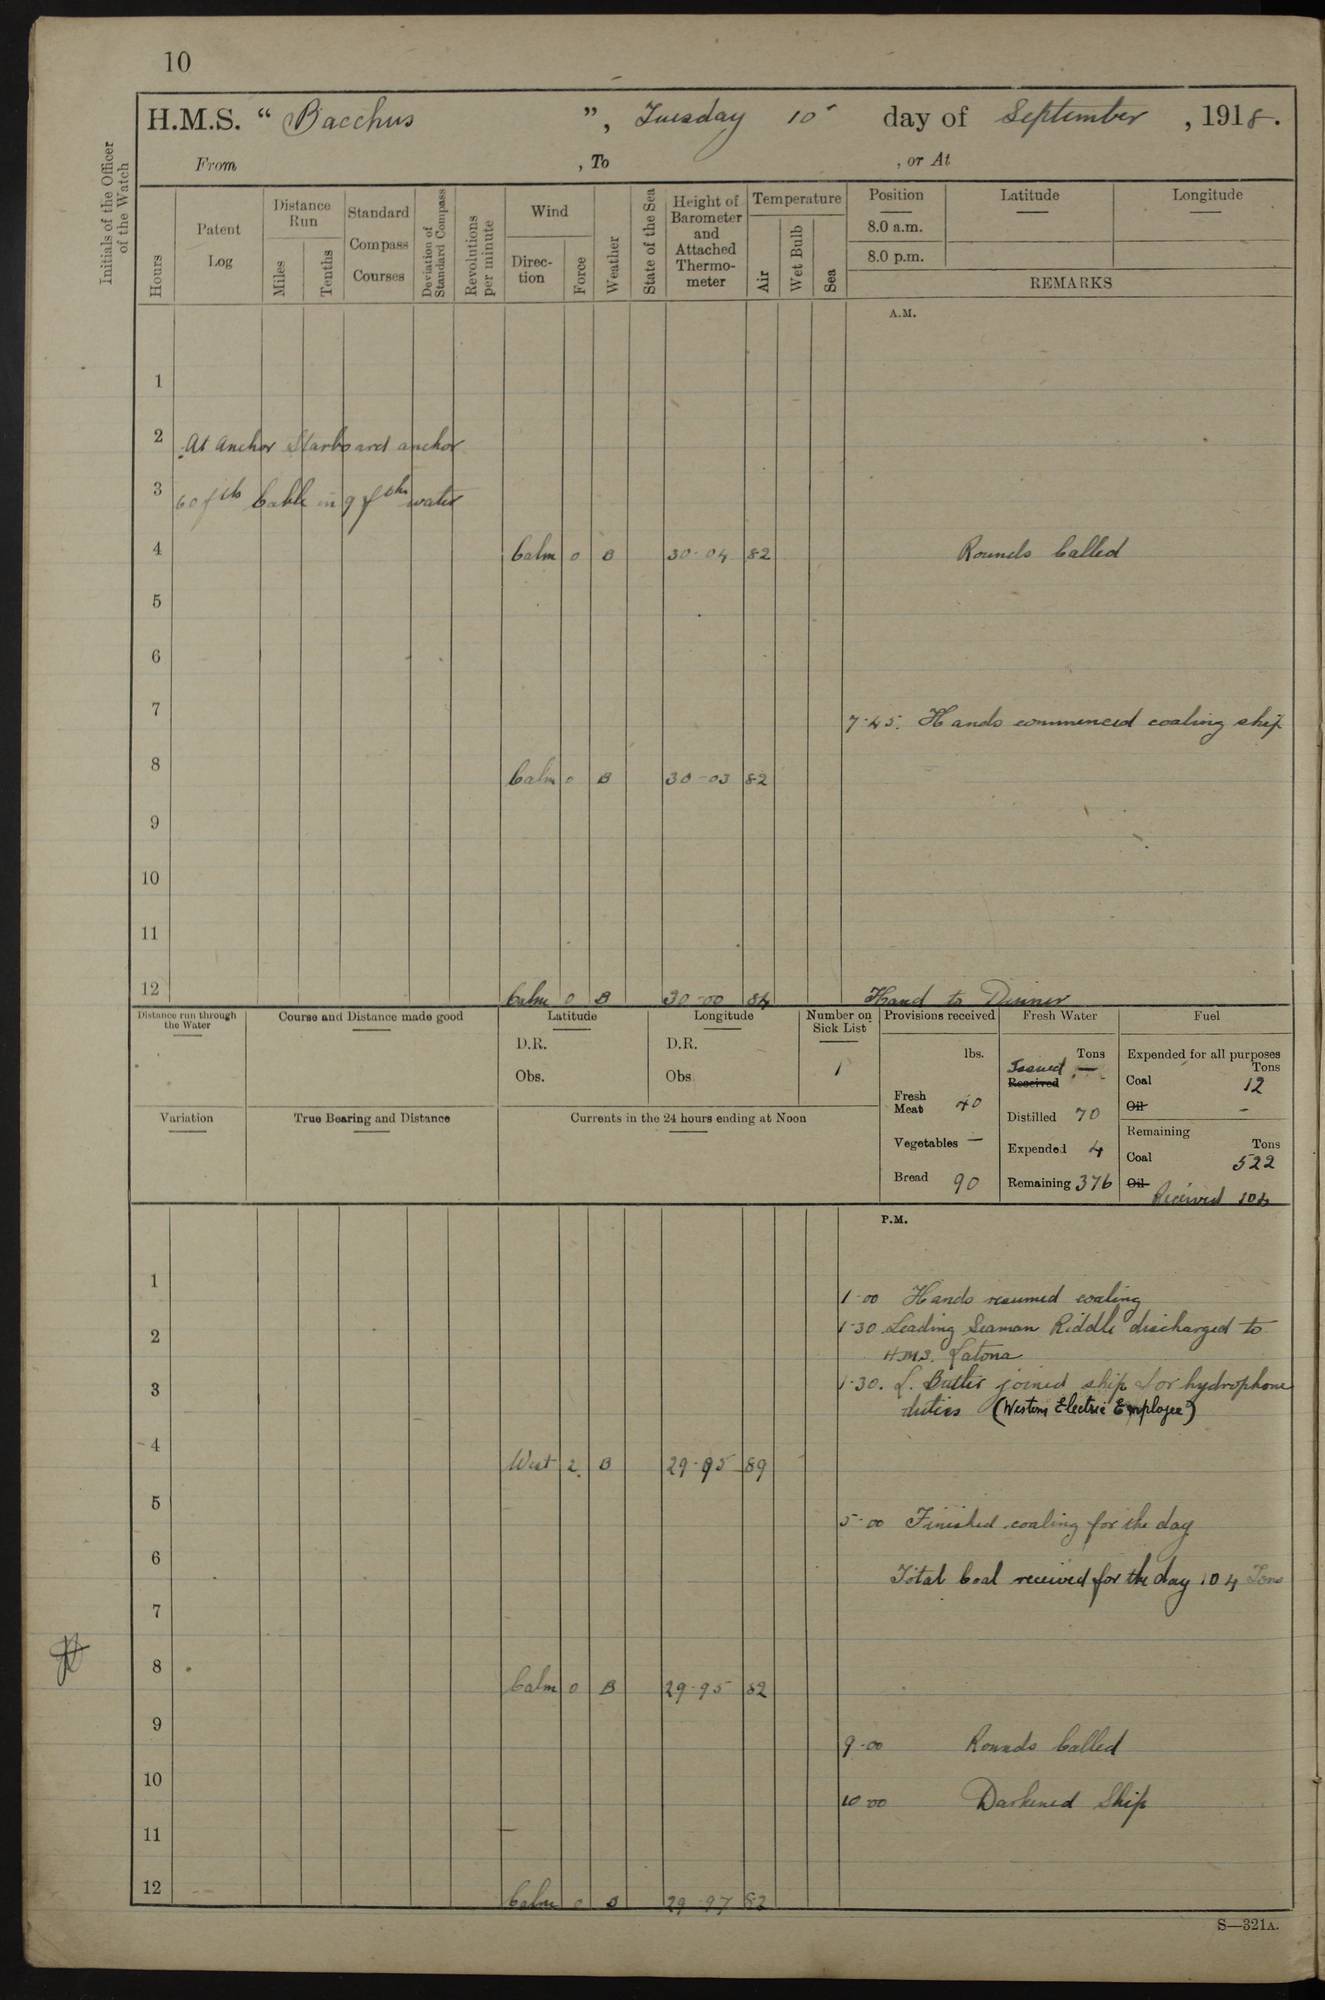 10
H.M.S. “ Bacchus ”, Tuesday 10 day of September , 1918.
From , To , or At
Initials of the Officer of the Watch
Hours
Patent Log
Distance Run
Miles
Tenths
Standard Compass Courses
Deviation of Standard Compass
Revolutions per minute
Wind
Direc-tion
Force
Weather
State of the Sea
Height of Barometer and Attached Thermo-meter
Temperature
Air
Wet Bulb
Sea
Position Latitude Longitude
8.0 a.m.
8.0 p.m.
REMARKS
A.M.
1
2 At anchor Starboard anchor
3 60 fths Cable in 9 fths water
4 Calm 0 B 30-04 82 Rounds Called
5
6
7 7-45. Hands commenced coaling ship
8 Calm 0 B 30-03 82
9
10
11
12 Calm 0 B 30-00 84 Hand to Dinner
Distance run through the Water
Course and Distance made good
Latitude
D.R.
Obs.
Longitude
D.R.
Obs
Number on Sick List
1
Provisions received
lbs.
Fresh Meat 40
Vegetables —
Bread 90
Fresh Water
Tons
Issued —
Received
Distilled 70
Expended 4
Remaining 376
Fuel
Expended for all purposes
Tons
Coal 12
Oil -
Remaining
Tons
Coal 522
Oil
Received 104
Variation
True Bearing and Distance
Currents in the 24 hours ending at Noon
P.M.
1 1-00 Hands resumed coaling
2 1-30 Leading Seaman Riddle discharged to
H.M.S. Latona
3 1-30. L. Butler joined ship for hydrophone
duties (Western Electric Employee)
4 West 2 B 29-95 89
5 5-00 Finished coaling for the day
6 Total Coal received for the day 104 Tons
7
8 Calm 0 B 29-95 82
9 9-00 Rounds Called
10 10-00 Darkened Ship
11
12 Calm 0 B 29-97 82
S—321A.